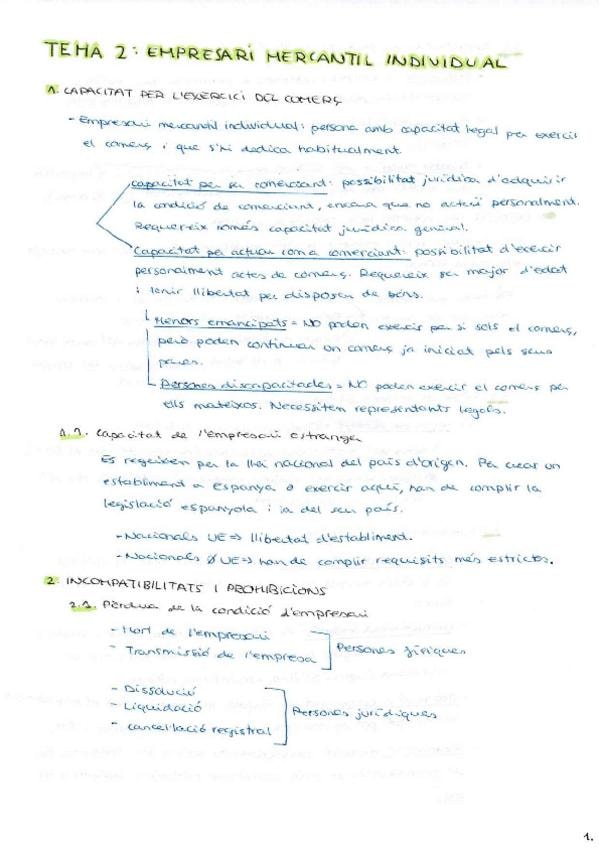 TEMA 2: EMPRESARI MERCANTIL INDIVIDUAL
1. CAPACITAT PER L'EXERCICI DEL COMERÇ
- Empresari mercantil individual: persona amb capacitat legal per exercir
el comerç i que s'hi dedica habitualment.
Capacitat per ser comerciant: possibilitat jurídica d'adquirir
la condició de comerciant, encara que no actuï personalment.
Requereix només capacitat jurídica general.
Capacitat per actuar com a comerciant: possibilitat d'exercir
personalment actes de comerç. Requereix ser major d'edat
i tenir llibertat per disposar de béns.
Menors emancipats = NO poden exercir per si sols el comerç,
però poden continuar un comerç ja iniciat pels seus
pares.
Persones discapacitades = NO poden exercir el comerç per
ells mateixos. Necessiten representants legals.
1.1. Capacitat de l'empresari estranger
Es regeixen per la llei nacional del país d'origen. Per crear un
establiment a Espanya o exercir aquí, han de complir la
legislació espanyola i la del seu país.
- Nacionals UE => llibertat d'establiment.
- Nacionals Ø UE => han de complir requisits més estrictes.
2. INCOMPATIBILITATS I PROHIBICIONS
2.1. Pèrdua de la condició d'empresari
- Mort de l'empresari
- Transmissió de l'empresa
Persones físiques
- Dissolució
- Liquidació
- Cancel·lació registral
Persones jurídiques
1.